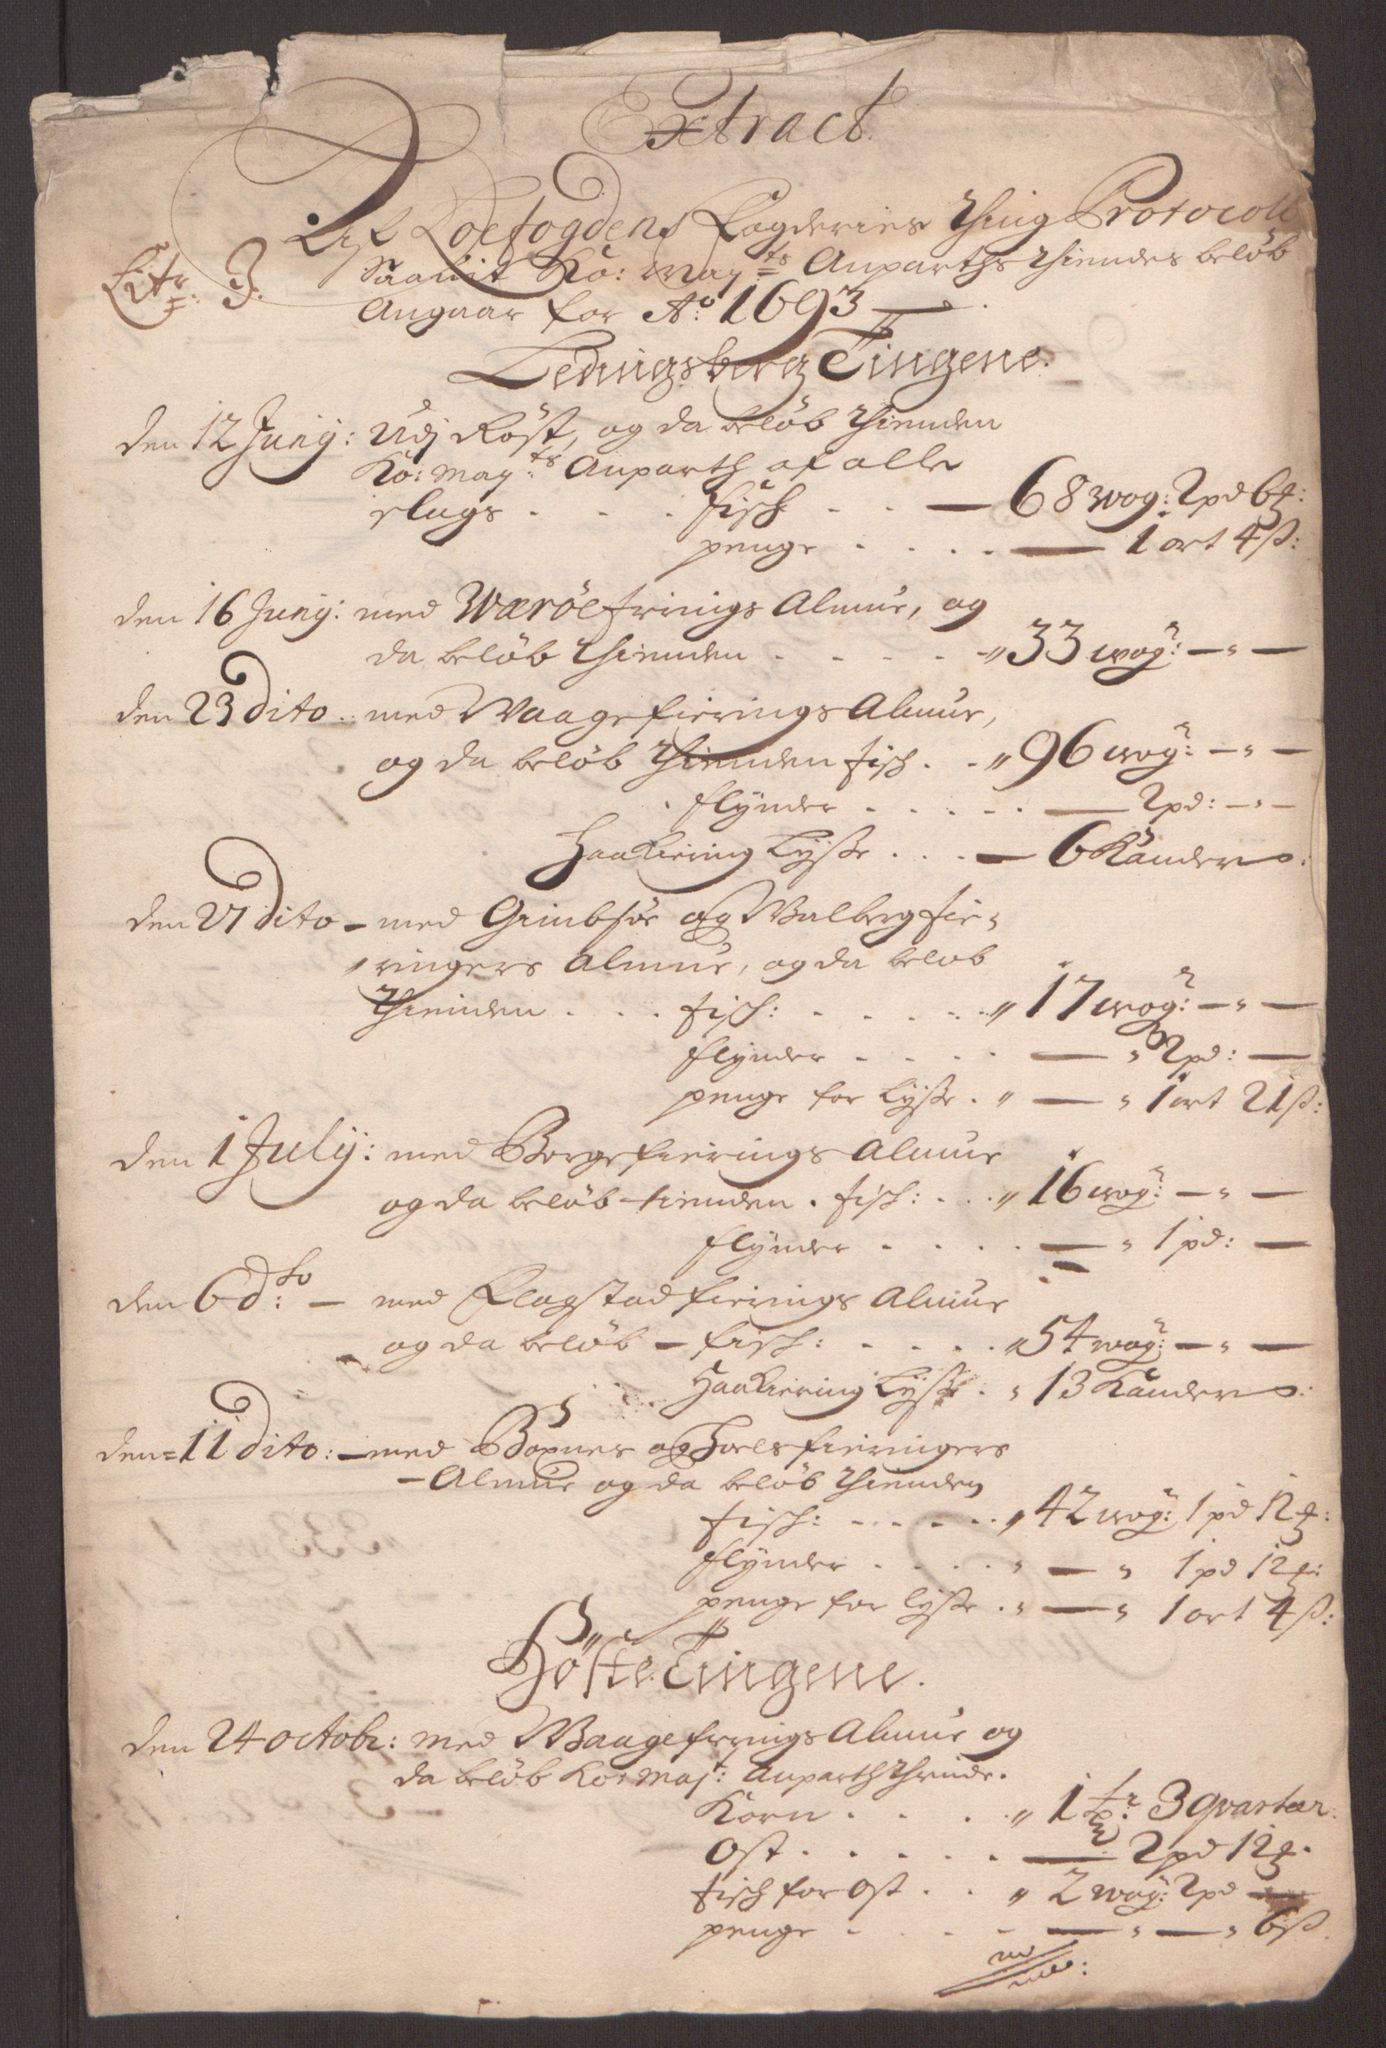 Extract
Af Loefogdens Fogderies Thing Protocoll
Litr: J. Saauit Ko: May:ts Anparths Thiendes beløb
Angaar for A:o 1693
Ledingsberg Tingene.
den 12 Junÿ: Udj Röst, og da beløb Thienden
Ko: May:ts Anparth af alle
slags . . . fisch . . — 68 wog: 2 pd 6 ℔:
penge . . . . — 1 ort 4 ß:
den 16 Junÿ: med Wæröe fierings Almue, og
da beløb Thienden . . . . . „ 33 wog: — „ —
den 23 Dito . med Waage fierings Almue,
og da beløb Thienden fisch . . „ 96 wog: — „ —
flÿnder . . . . . — 2 pd: — „ —
Haakiering Lÿsse . . . — 6 Kander
den 27 Dito — med Gimbsöe og Walberg fie-
ringers Almue, og da beløb
Thienden . . . fisch: . . . . . . „ 17 wog: — „ —
flÿnder . . . . — „ 2 pd: —
penge for Lÿsse . „ — „ 1 ort 21 ß:
den 1 Julÿ: med Borge fierings Almue
og da beløb tienden . fisch: . . . „ 16 wog: — „ —
flÿnder . . . . — „ 1 pd: —
den 6 d:to — med Flagstad fierings Almue
og da beløb — fisch: . . . . . „ 54 wog: — „ —
Haakiering Lÿsse . „ 13 Kander
den 11 Dito: — med Boxnes og Hoels fieringers
Almue og da beløb Thienden
fisch: . . . . . „ 42 wog: 1 pd 12 ℔:
flÿnder . . . . „ — „ 1 pd 12 ℔:
penge for lÿsse . „ — „ 1 ort 4 ß:
Höste Tingene.
den 24 octobr: med Waage fierings Almue og
da beløb Ko: Maj:t Anparth Thiende.
Korn . . . . „ 1 tr: 3 qvarter.
Ost . . . . . — 2 pd 12 ℔.
fisch for ost . . „ 2 wog: 2 pd —
penge . . . . — „ — „ 6 ß.